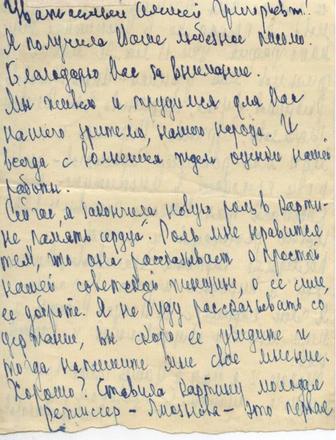 Уважаемый Алексей Григорьевич.
Я получила Ваше любезное письмо.
Благодарю Вас за внимание.
Мы живем и трудимся для Вас
нашего зрителя, нашего народа. И
всегда с волнением ждем оценки нашей
работы.
Сейчас я закончила новую роль в карти-
не „Память сердца". Роль мне нравится
тем, что она рассказывает о простой
нашей советской женщине, о ее силе,
ее доброте. Я не буду рассказывать со
держание, Вы скоро ее увидите и
тогда напишите мне свое мнение.
Хорошо? Ставила картину молодая
режиссер - Лиознова - это первая